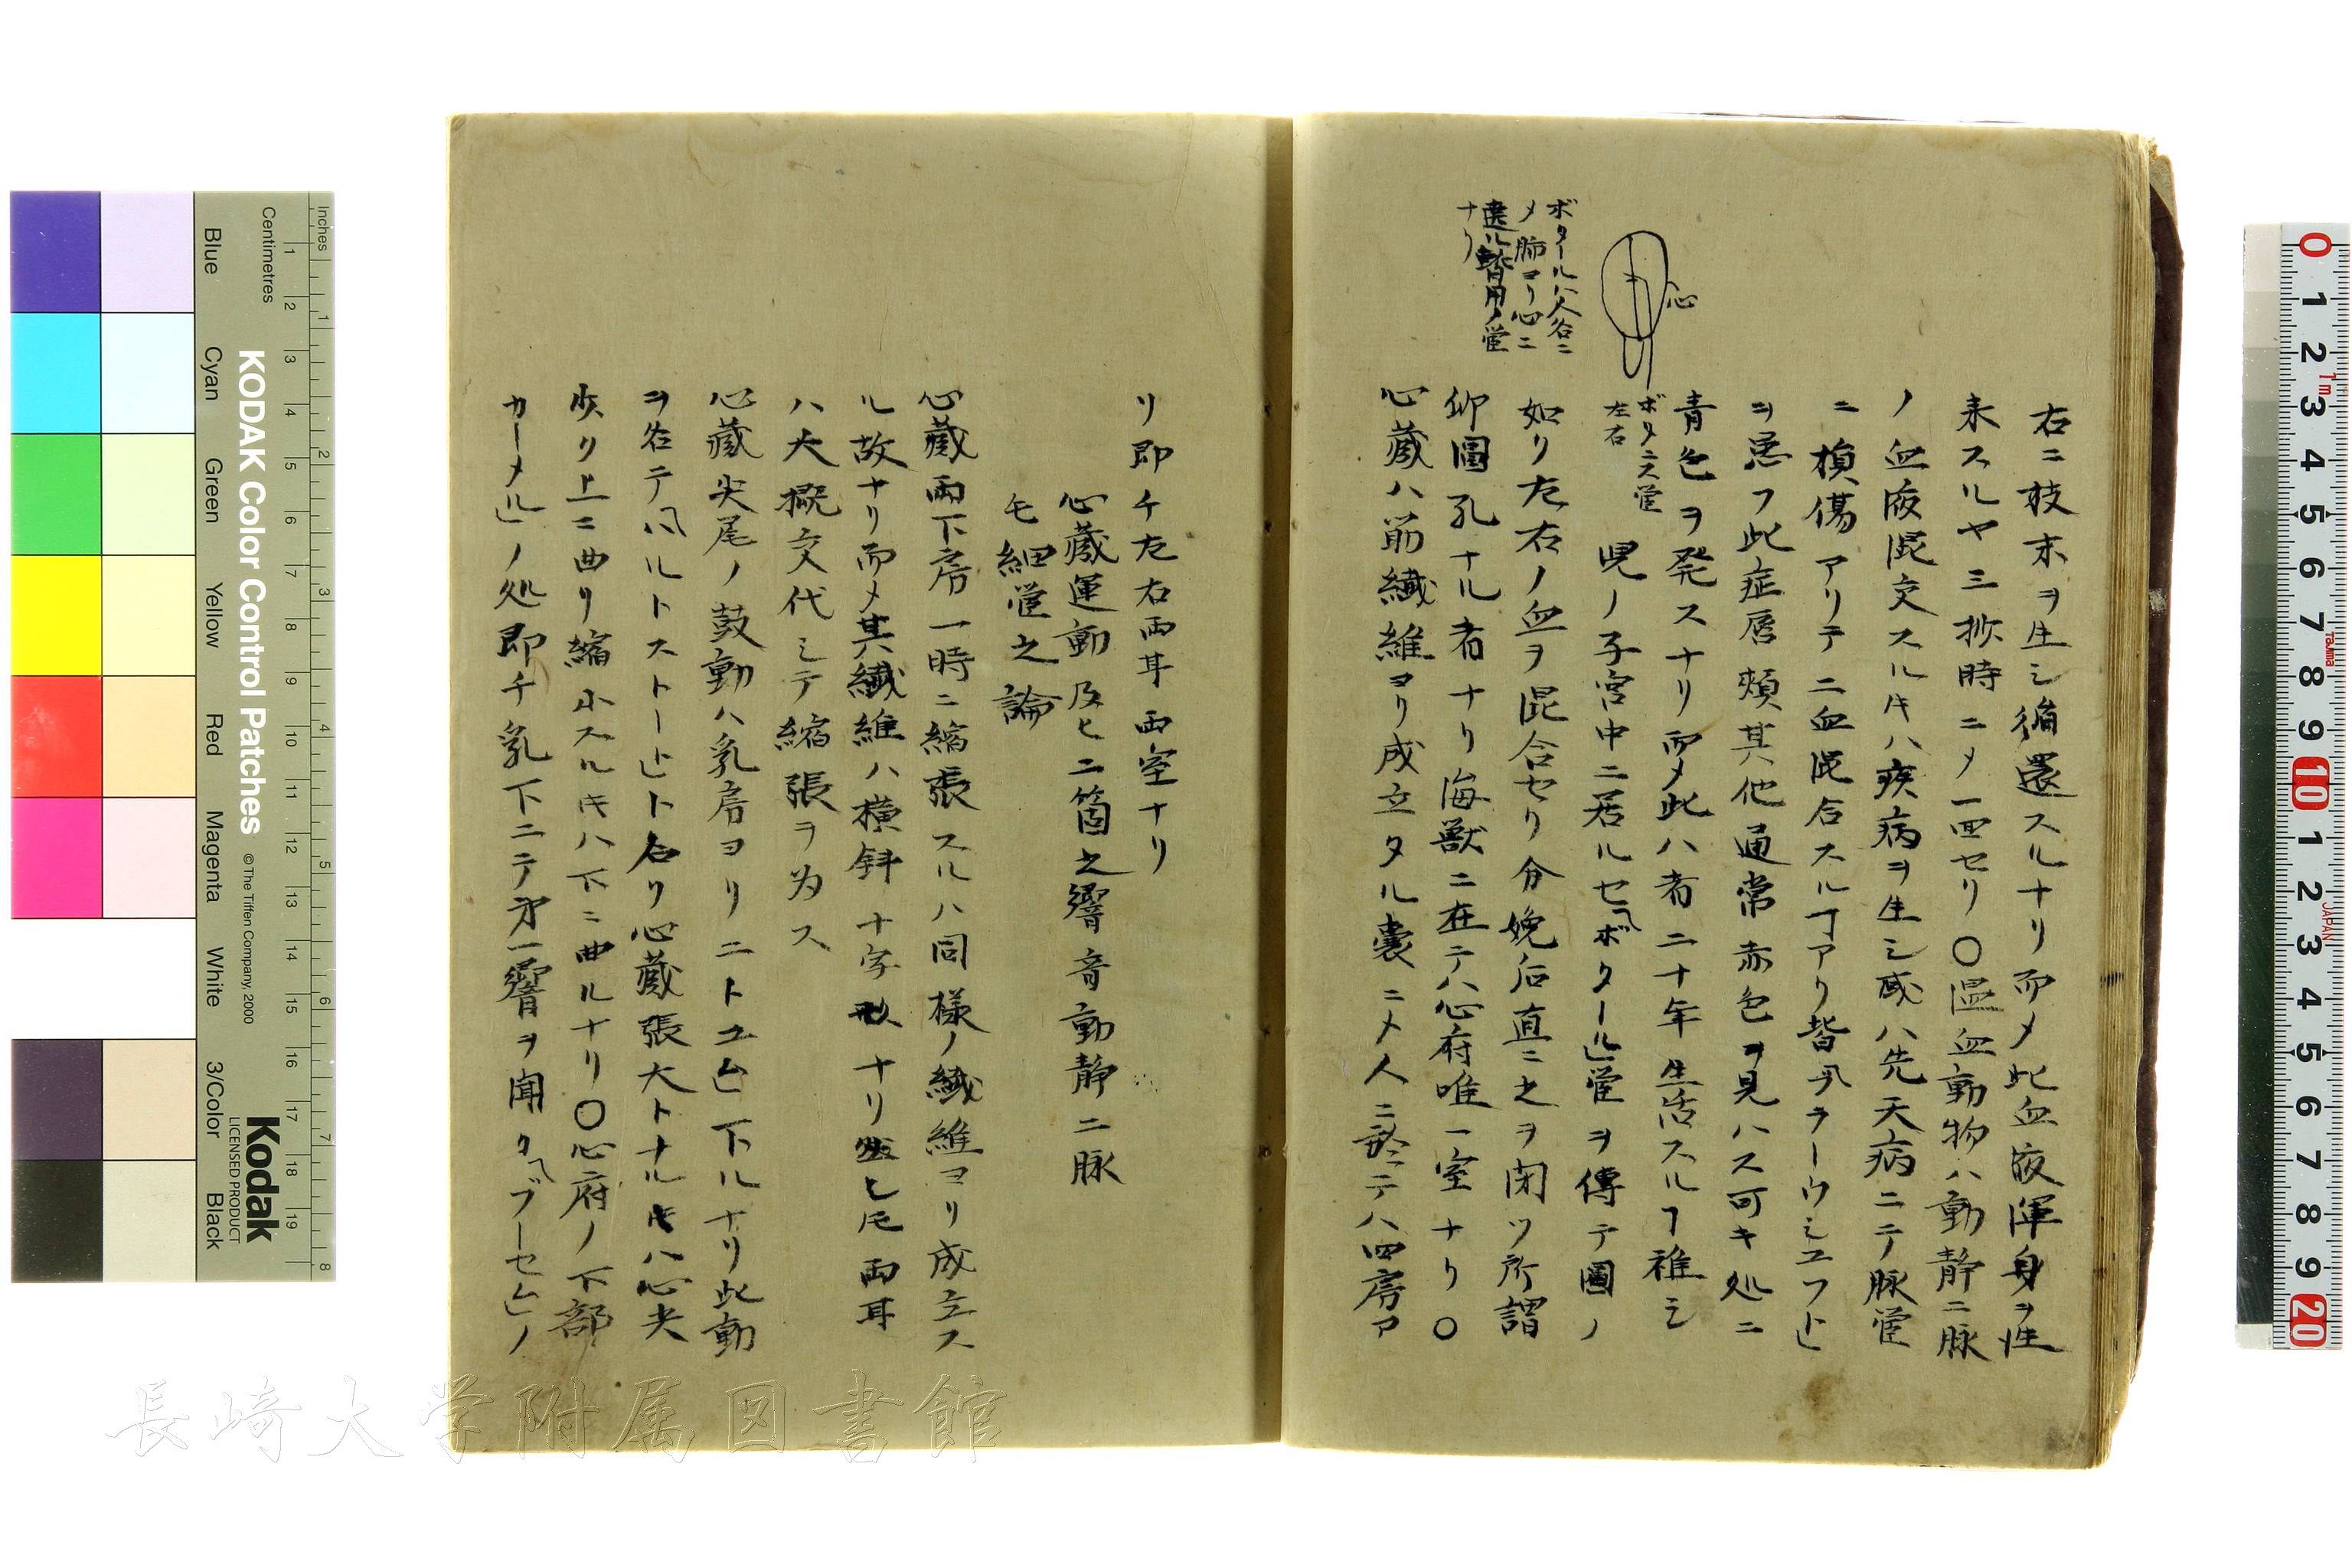 右ニ枝末ヲ生シ循還スルナリ而メ此血液渾身ヲ往
来スルヤ三拾時ニメ一回セリ〇温血動物ハ動静二脉
ノ血液混交スルキハ疾病ヲ生シ或ハ先天病ニテ脉管
ニ損傷アリテ二血混合スルヿアリ皆
ヲ患フ此症唇頬其他通常赤色ヲ見ハス可キ処ニ
青色ヲ発スナリ而メ此ハ者二十年生活スルヿ稚シ
児ノ子宮中ニ居ルセ「ボタール」管ヲ傳テ圖ノ
如リ左右ノ血ヲ混合セリ分娩后直ニ之ヲ閉ツ所謂
卵圓孔ナル者ナリ海獣ニ在テハ心府唯一室ナリ〇
心蔵ハ筋繊維ヨリ成立タル嚢ニメ人ニ於テハ四房ア
心
ボタニス管
左右
ボタールハ人名ニ
メ肺ヨリ心ニ
還ル管
ナリ
リ即チ左右両耳両室ナリ
心蔵運動及ヒ二箇之響音動静二脉
モ細管之論
心蔵両下房一時ニ縮張スルハ同様ノ繊維ヨリ成立ス
ル故ナリ而メ其繊維ハ横斜十字形ナリ然ヒ𪜈両耳
ハ大概交代シテ縮張ヲ为ス
心蔵尖尾ノ鼓動ハ乳房ヨリ二トユム」下ルナリ此動
ヲ名テ「ハルトストート」ト名リ心蔵張大トナルキハ心尖
少リ上ニ曲リ縮小スルキハ下ニ曲ルナリ〇心府ノ下部
カーメル」ノ処即チ乳下ニテ第一響ヲ聞ク「ブーセム」ノ
KODAK Color Control Patches
© The Tiffen Company, 2000
Kodak
LICENSED PRODUCT
Inches
Centimetres
Blue
Cyan
Green
Yellow
Red
Magenta
White
3/Color
Black
長崎大学附属図書館